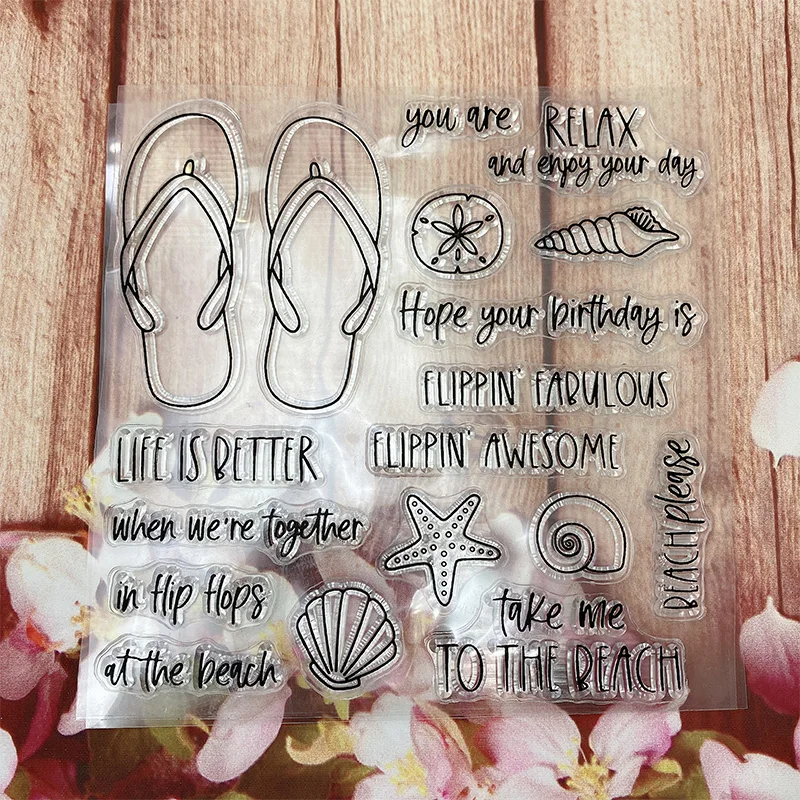 you are
RELAX
and enjoy your day
Hope your birthday is
FLIPPIN' FABULOUS
LIFE IS BETTER
FLIPPIN' AWESOME
BEACH please
when we're together
in flip flops
at the beach
take me
TO THE BEACH